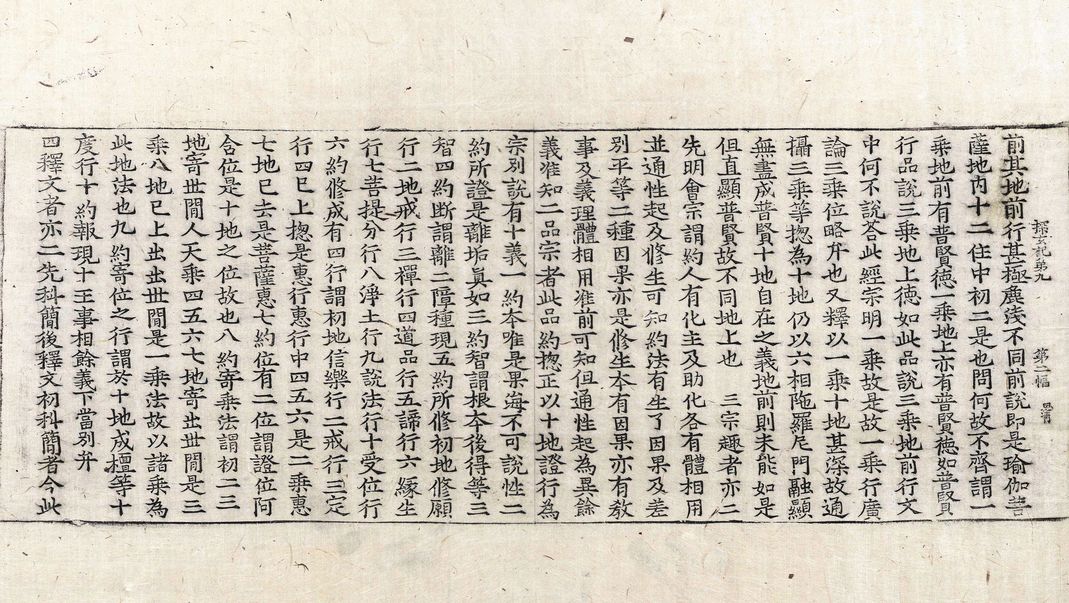 前其地前行甚極廣後不同前說即是瑜伽菩
薩地內十二住中初二是也問何故不齊謂一
乘地前有普賢德一乘地上亦有普賢德如普賢
行品說三乘地上德如此品說三乘地前行文
中何不說荅此經宗明一乘故是故一乘行廣
論三乘位略弁也又釋以一乘十地甚深故通
攝三乘等揔為十地仍以六相陁羅尼門融顯
無盡成普賢十地自在之義地前則未能如是
但直顯普賢故不同地上也 三宗趣者亦二
先明會宗謂約人有化主及助化各有體相用
並通性起及修生可知約法有生了因果及差
別平等二種因果亦是修生夲有因果亦有敎
事及義理體相用准前可知但通性起為異餘
義准知二品宗者此品約揔正以十地證行為
宗別說有十義一約夲唯是果海不可說性二
約所證是離垢眞如三約智謂根夲後得等三
智四約断謂離二障種現五約所修初地修願
行二地戒行三禪行四道品行五諦行六緣生
行七菩提分行八淨土行九說法行十受位行
六約修成有四行謂初地信樂行二戒行三定
行四巳上揔是惠行惠行中四五六是二乘惠
七地巳去是菩薩惠七約位有二位謂證位阿
含位是十地之位故也八約寄乘法謂初二三
地寄世間人天乘四五六七地寄出世間是三
乘八地巳上出出世間是一乘法故以諸乘為
此地法也九約寄位之行謂於十地成檀等十
度行十約報現十王事相餘義下當別弁
四釋文者亦二先科簡後釋文初科簡者今此
第九
第二幅